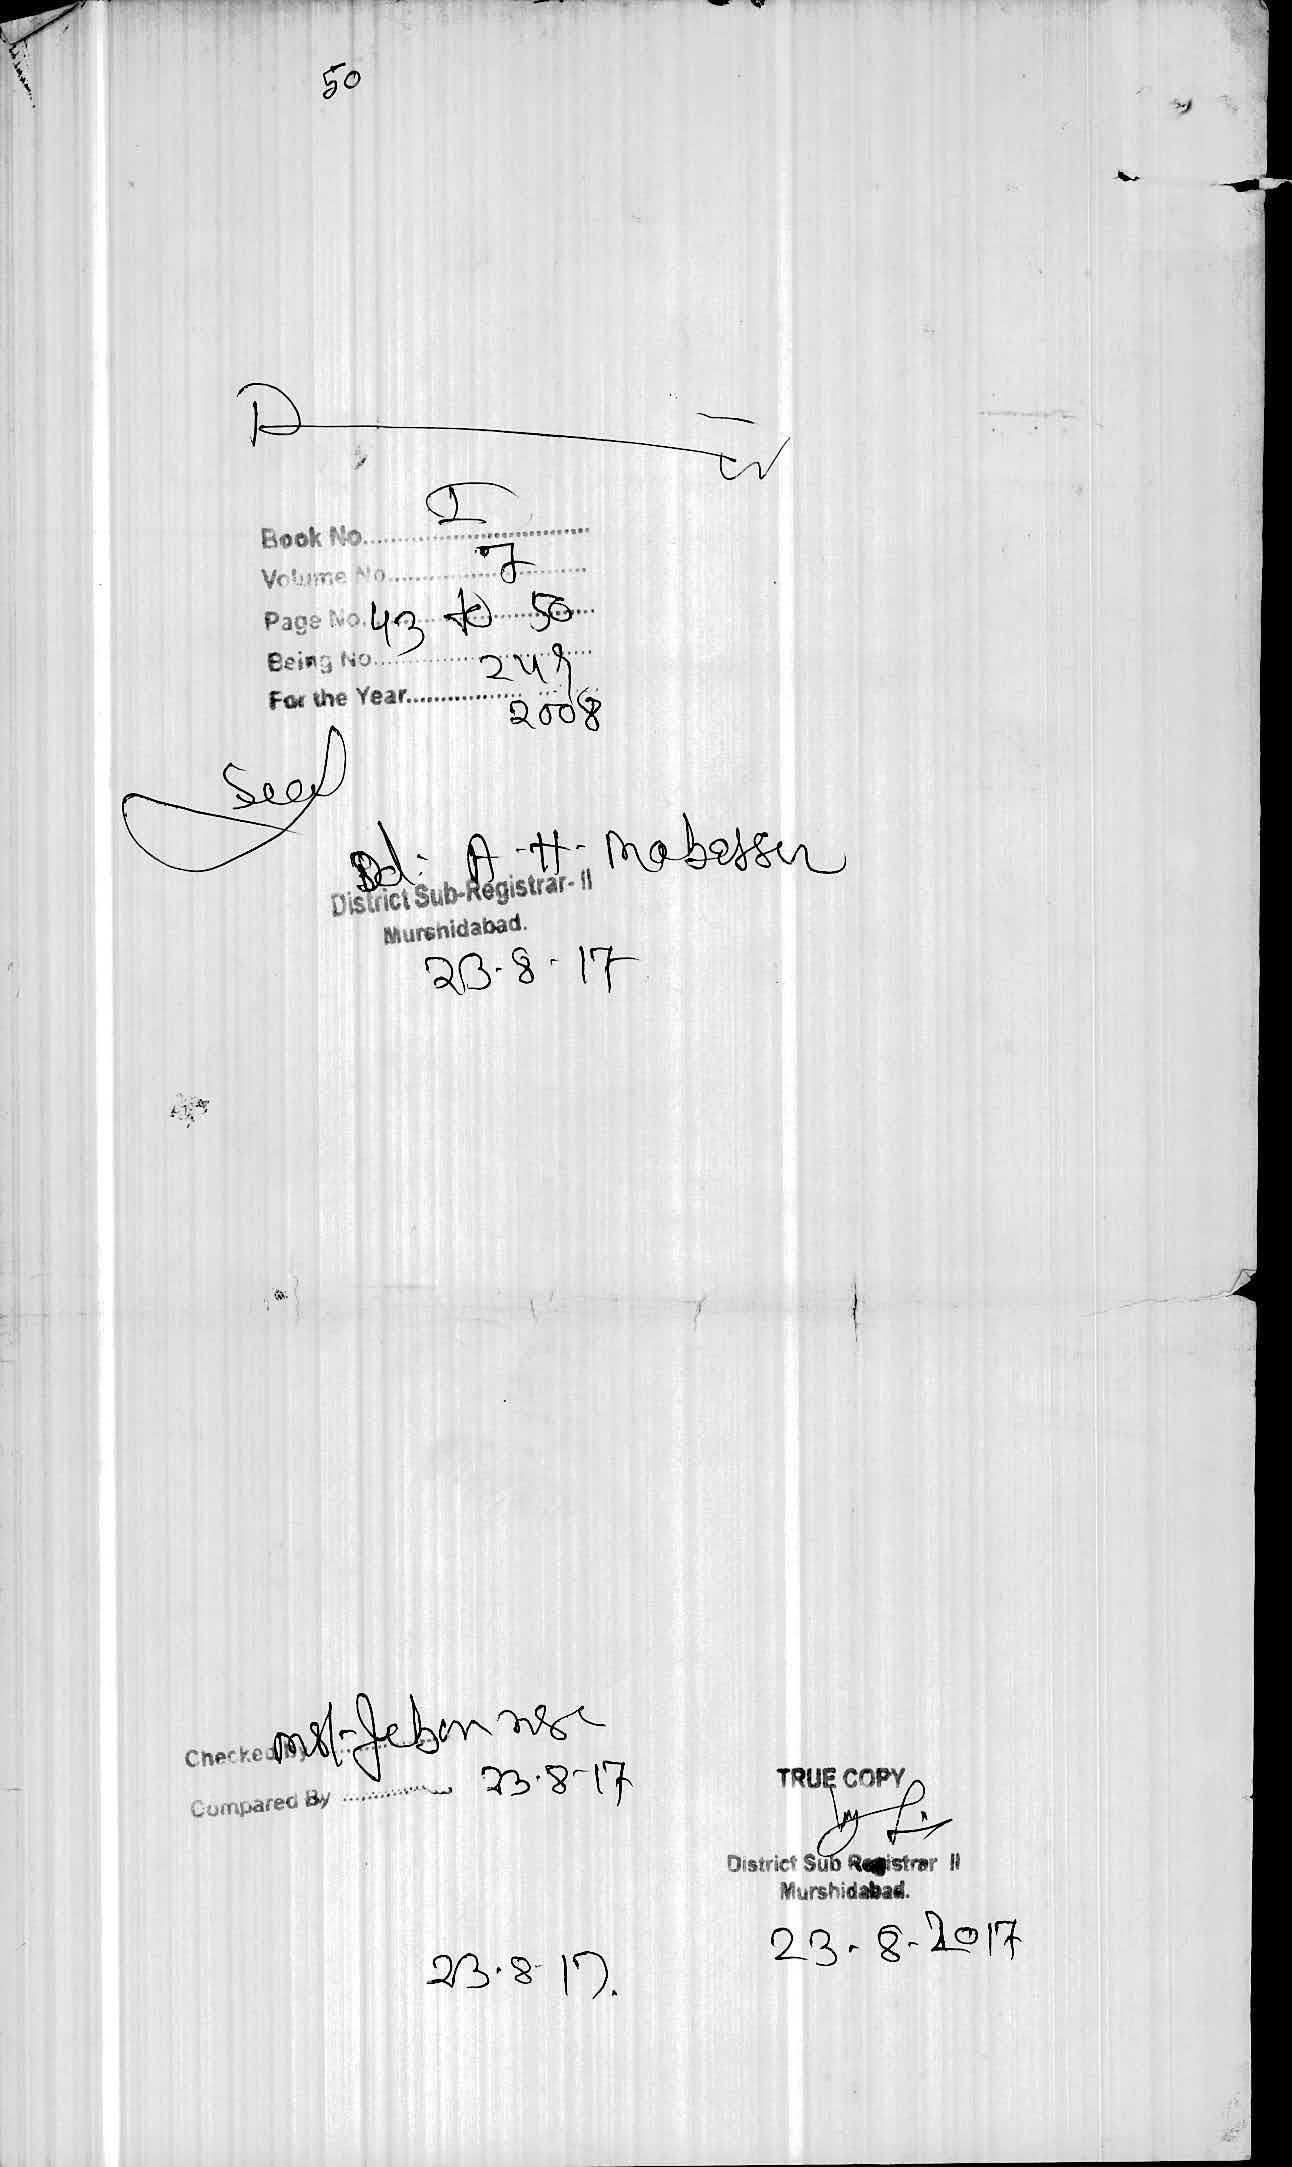 50
Book No. I
Volume No. 7
Page No. 43 to 50
Being No. 249
For the Year 2008
Seal
Sd: A-H- Mobasser
District Sub-Registrar-II
Murshidabad.
23-8-17
Checked By
23-8-17
Compared By
TRUE COPY
District Sub Registrar II
Murshidabad.
23-8-2017
23-8-17.